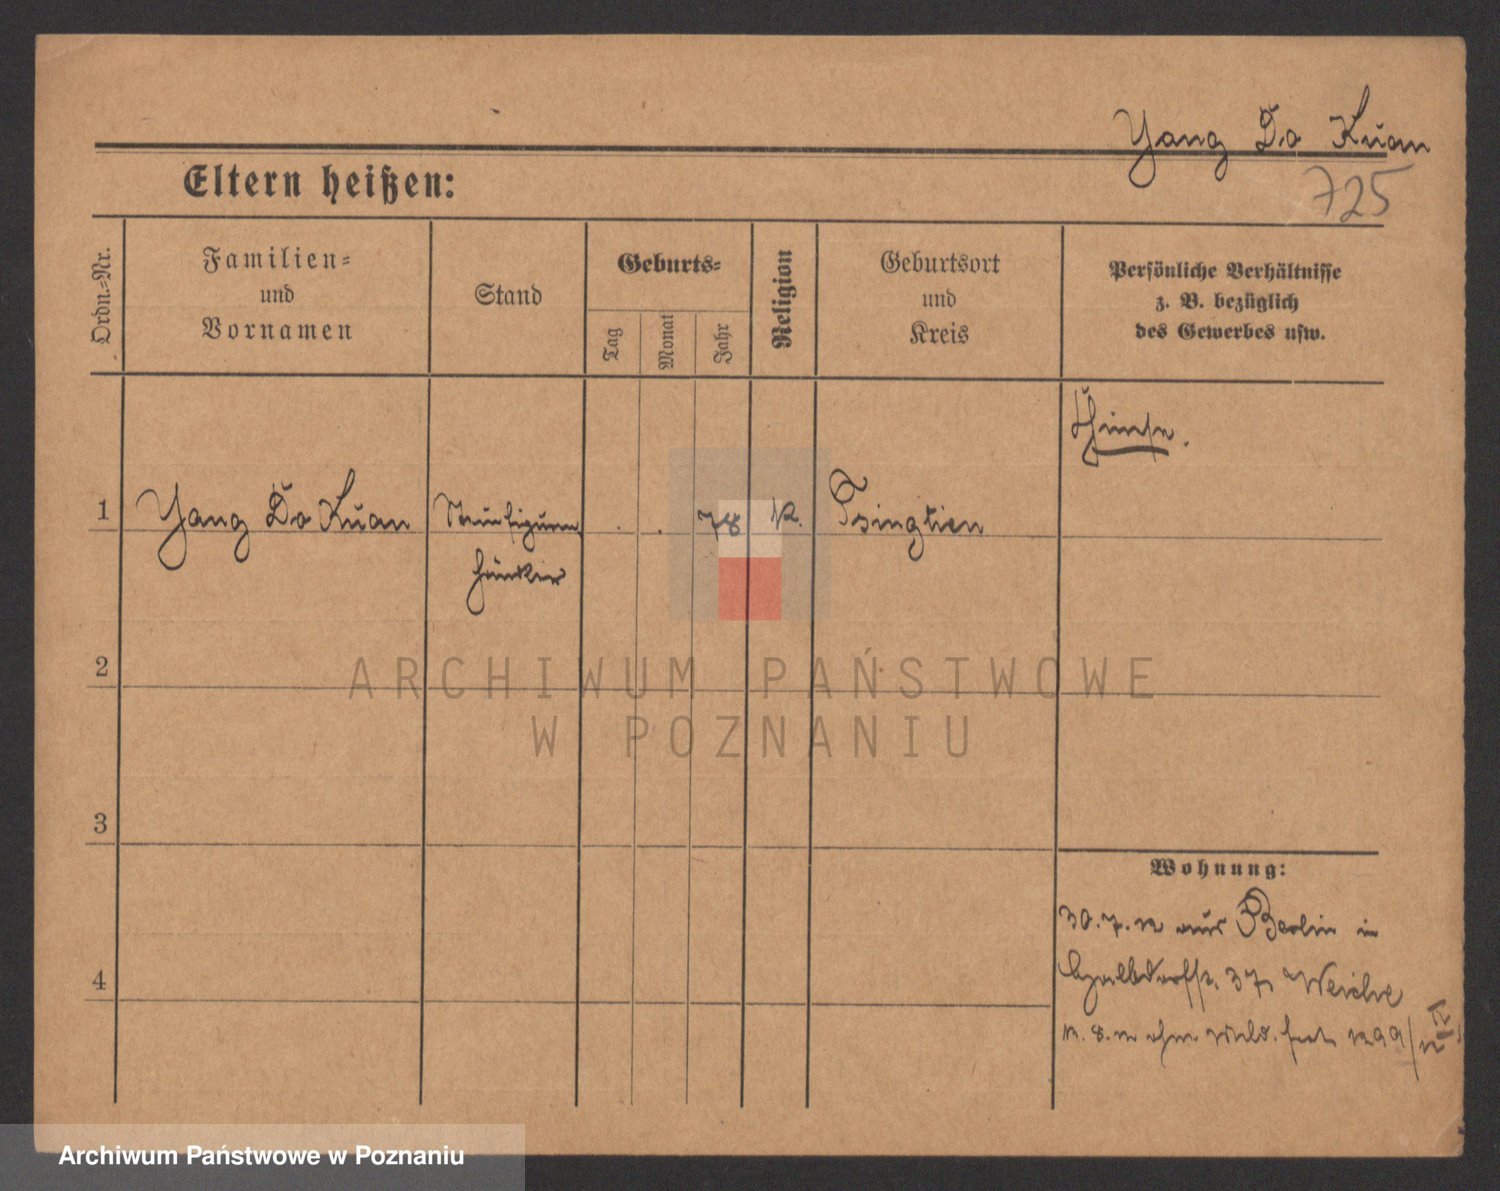 Yang Do Kuan
725
Eltern heißen:
Ordn.-Nr.
Familien-
und
Vornamen
Stand
Geburts-
Tag
Monat
Jahr
Religion
Geburtsort
und
Kreis
Persönliche Verhältnisse
z. B. bezüglich
des Gewerbes usw.
Chinese.
1 Yang Do Kuan Steinfiguren 78 K. Tsingtien
händler
2
3
4
Wohnung:
30. 7. 12 aus Berlin in
37, Weiche
ohne
ARCHIWUM PAŃSTWOWE
W POZNANIU
Archiwum Państwowe w Poznaniu